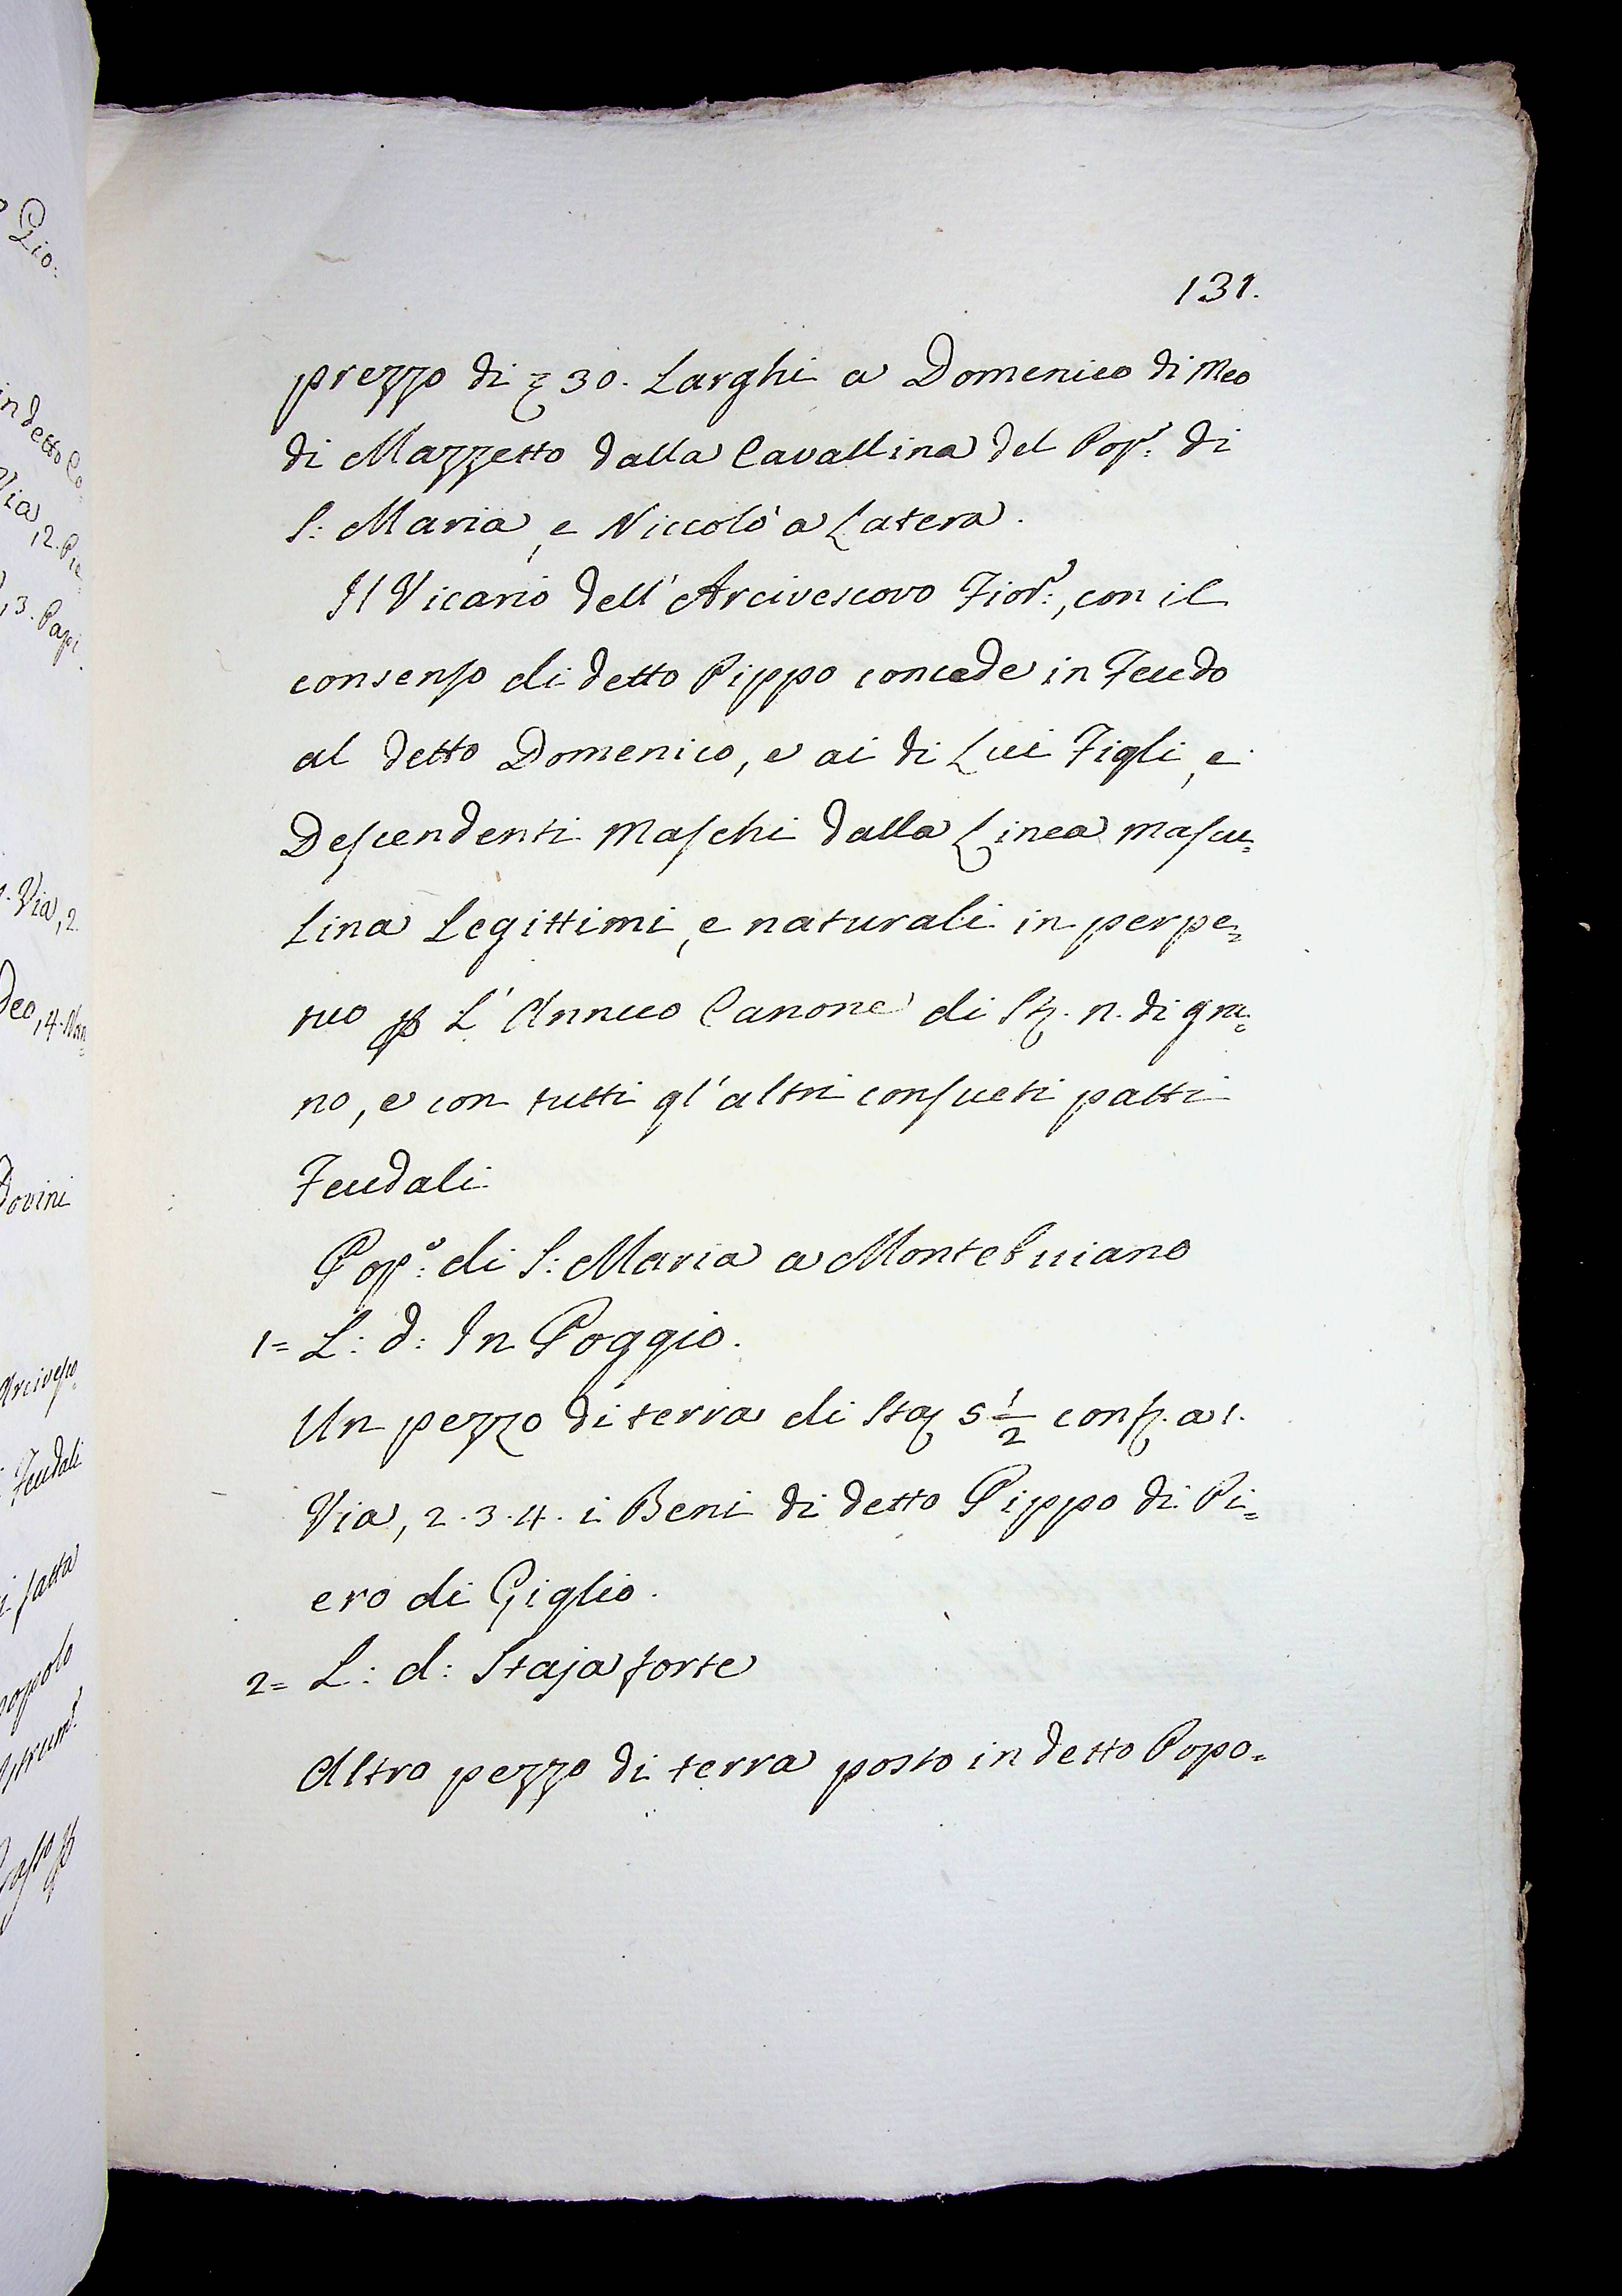 Gio:
in detto Co=
Via, 2. Pie
3. Papi
1. Via, 2.
Deo, 4. Nan=
Dovini
Arcivesco=
Feudali
fatta
popolo
131.
prezzo di ƺ 30. Larghi a Domenico di Meo
di Mazzetto dalla Cavallina del Pop.º di
S: Maria, e Niccolò a Latera.
Il Vicario dell' Arcivescovo Fior.º, con il
consenso di detto Pippo concede in Feudo
al detto Domenico, e ai di Lui Figli, e
Descendenti Maschi dalla Linea mascu=
lina Legittimi, e naturali in perpe=
tuo ꝑ L' Annuo Canone di St. n. di gra=
no, e con tutti gl' altri consueti patti
Feudali
Pop.º di S: Maria a Montebuiano
1= L: d: In Poggio.
Un pezzo di terra di Sta 5 1/2 conf. a 1.
Via, 2. 3. 4. i Beni di detto Pippo di Pi=
ero di Giglio.
2= L: d: Staja forte
Altro pezzo di terra posto in detto Popo=